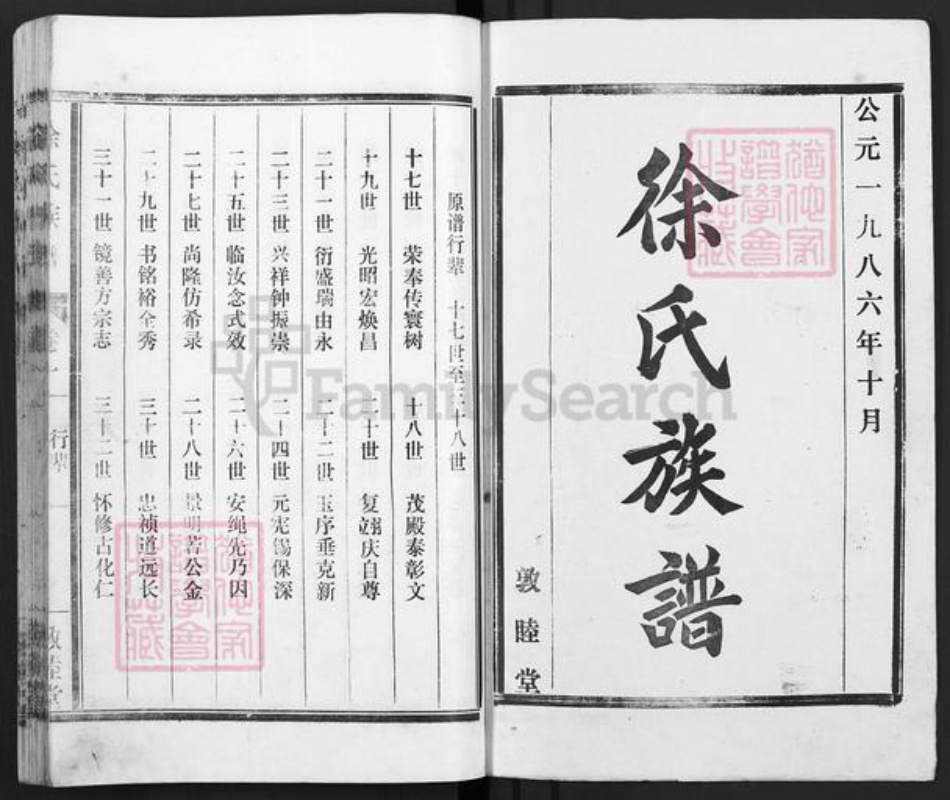 公元一九八六年十月
徐氏族譜
敦睦堂
猶他家譜學會收藏
原谱行辈 十七世至三十八世
十七世 荣奉传寰树 十八世 茂殿泰彰文
十九世 光昭宏焕昌 二十世 复翊庆自尊
二十一世 衍盛瑞由永 二十二世 玉序垂克新
二十三世 兴祥钟振崇 二十四世 元宪锡保深
二十五世 临汝念式效 二十六世 安绳先乃因
二十七世 尚隆仿希录 二十八世 景明若公金
二十九世 书铭裕全秀 三十世 忠祯道远长
三十一世 镜善方宗志 三十二世 怀修占化仁
猶他家譜學會收藏
徐氏族譜
卷
行辈
敦睦堂
FamilySearch